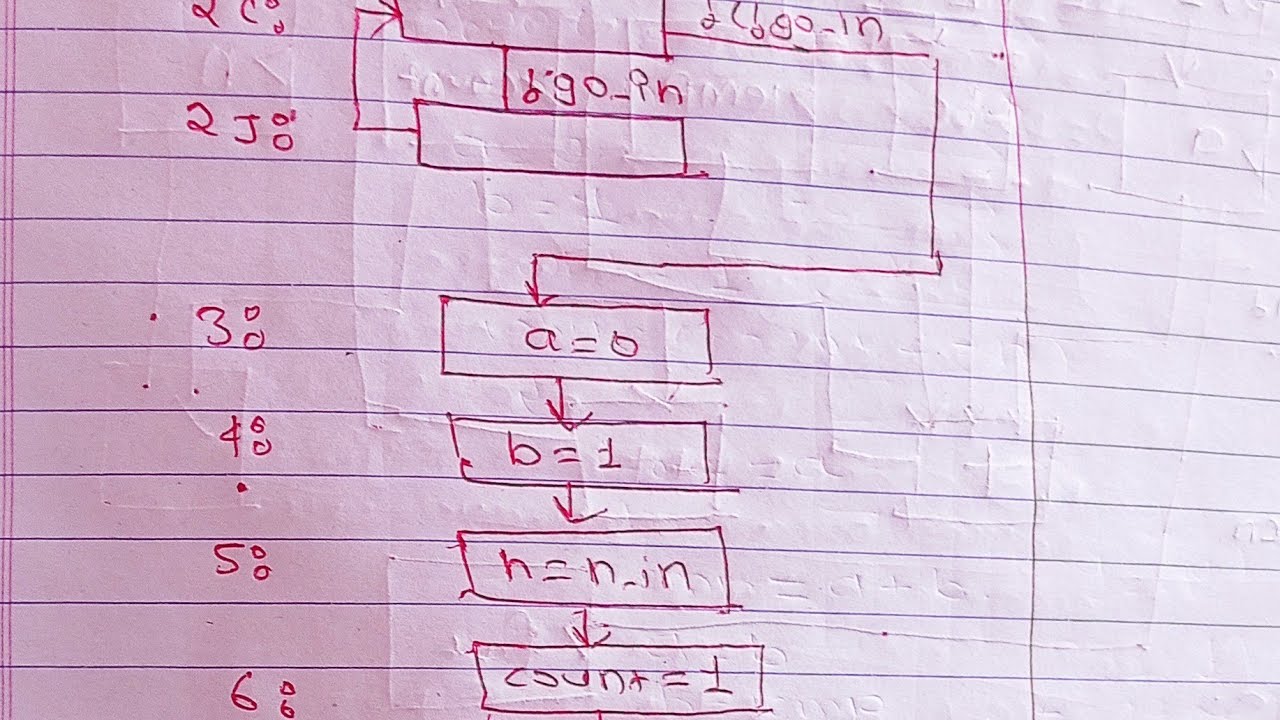 2 C:
!(!go-in
!go-in
2 J:
3:
a = 0
4:
b = 1
5:
n = n-in
6:
count = 1